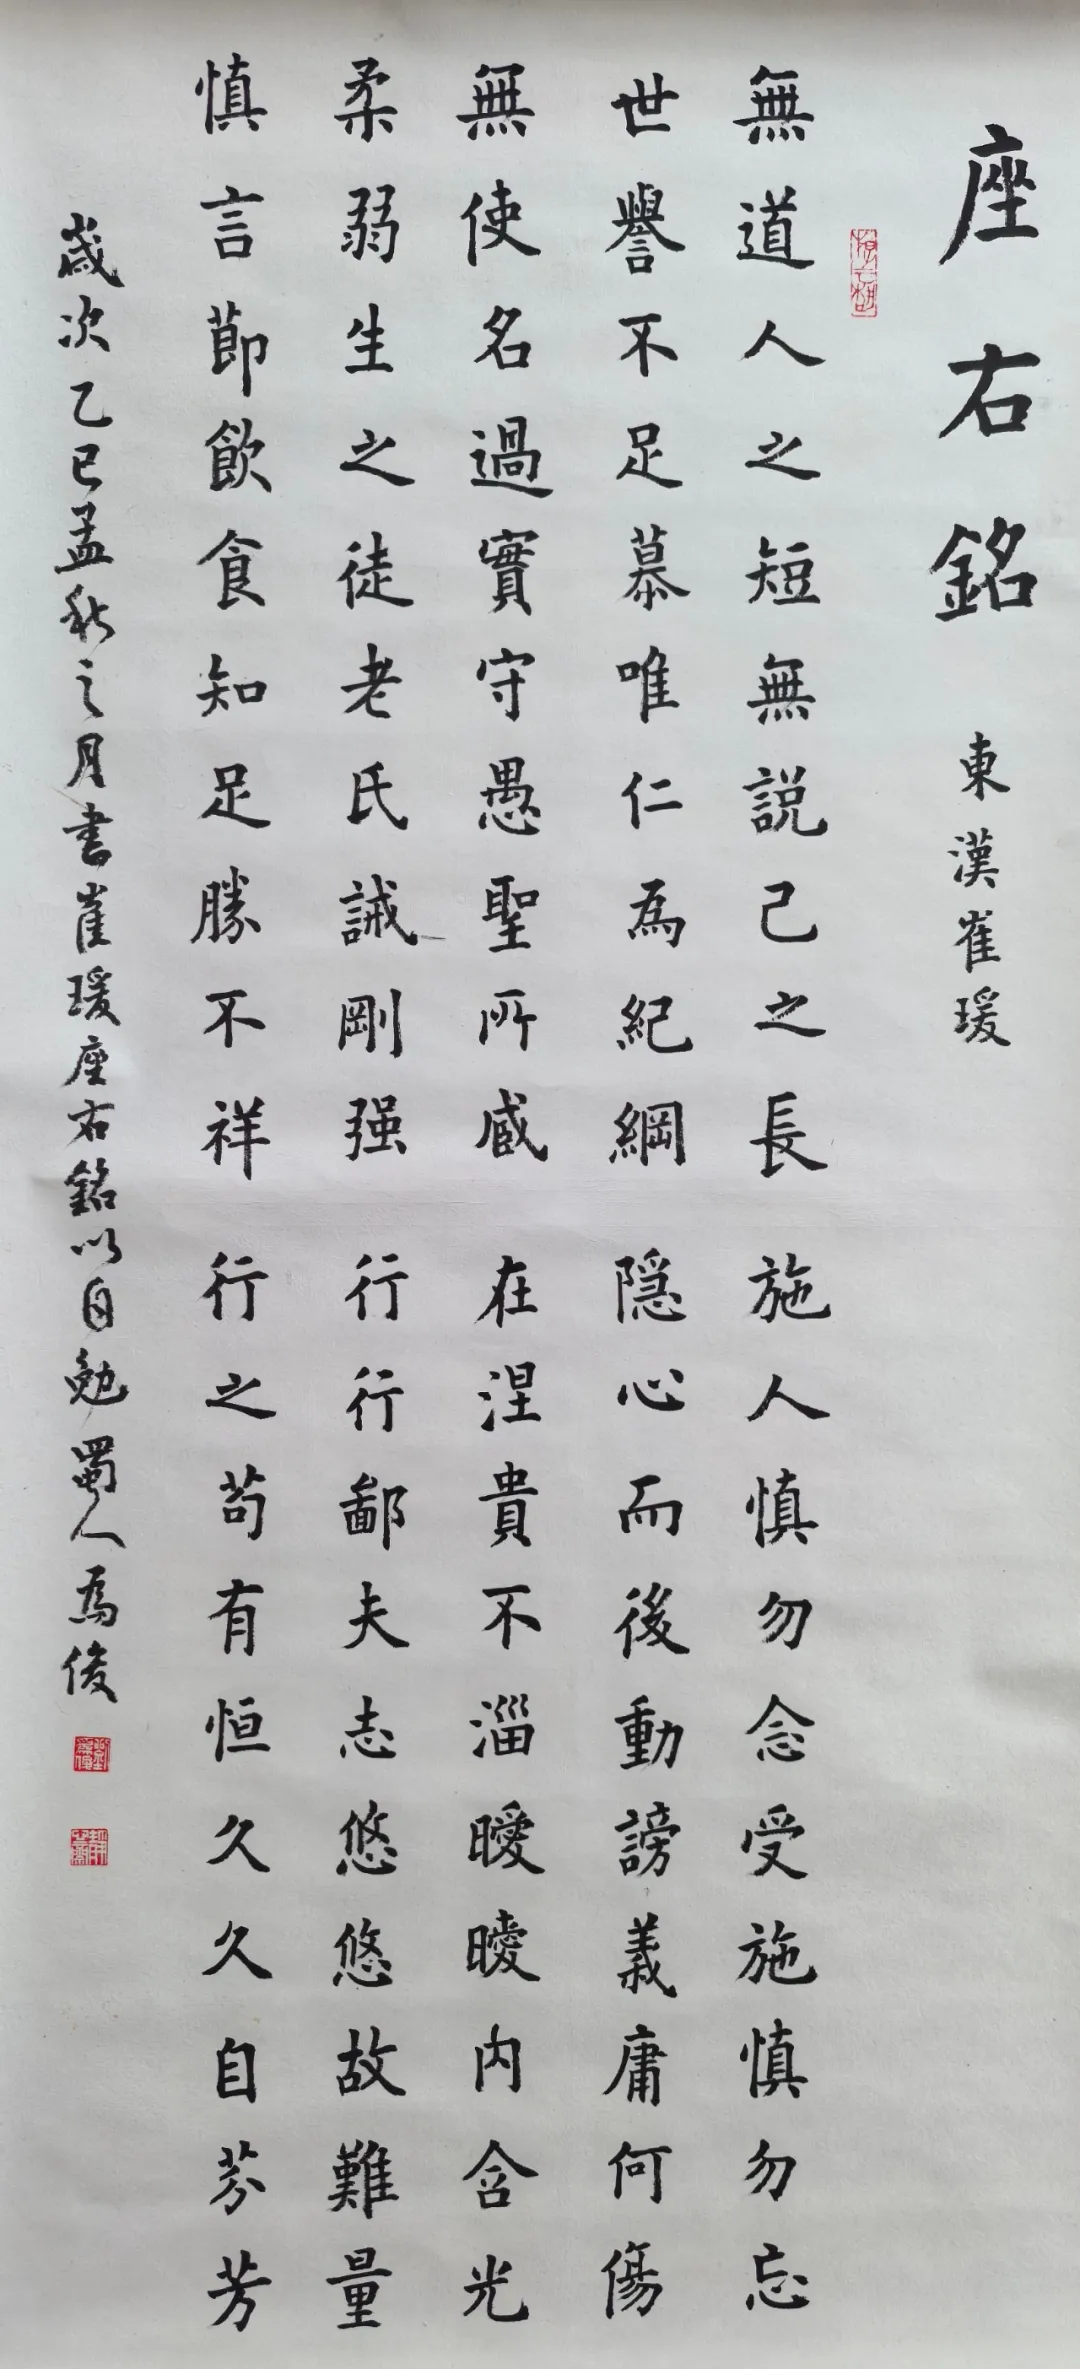 座右銘 東漢崔瑗
無道人之短無説己之長 施人慎勿念受施慎勿忘
世譽不足慕唯仁為紀綱 隠心而後動謗義庸何傷
無使名過實守愚聖所臧 在涅貴不淄曖曖内含光
柔弱生之徒老氏誡剛强 行行鄙夫志悠悠故難量
慎言節飲食知足勝不祥 行之苟有恒久久自芬芳
歲次乙巳孟秋之月書崔瑗座右銘以自勉蜀人為俊